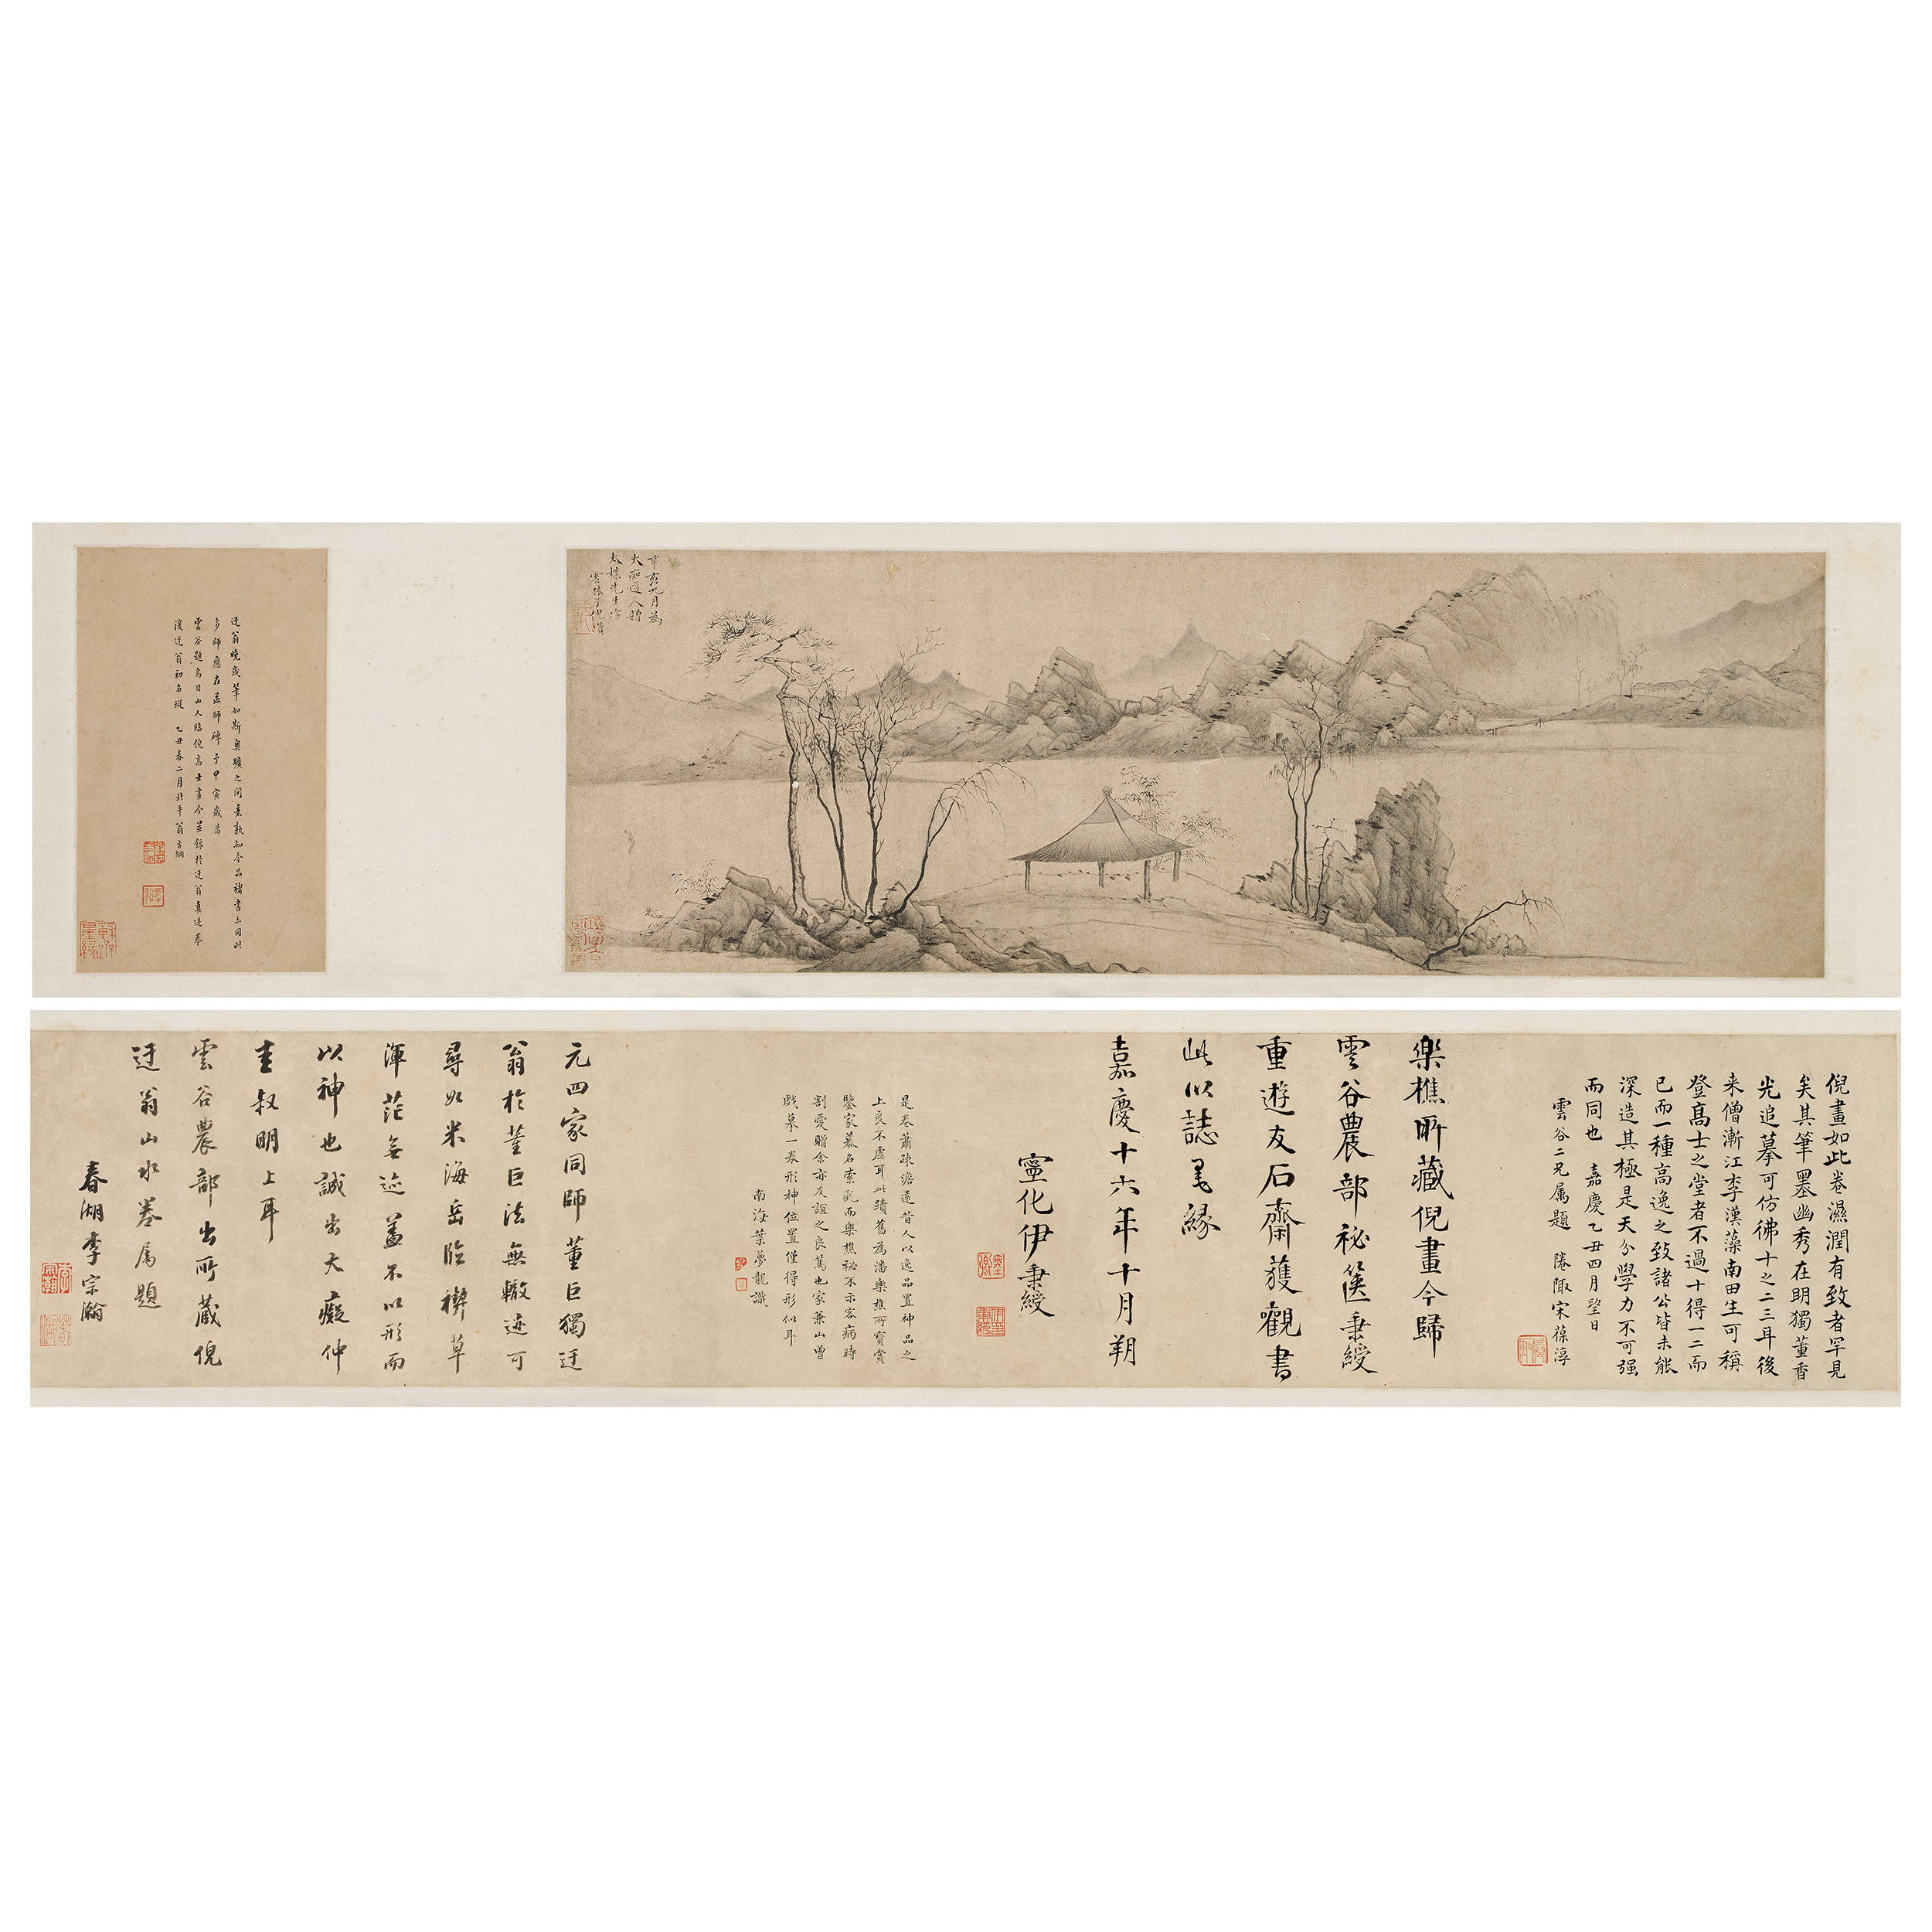 辛亥九月為
大癡道人贈
太樸先生作
雲林子倪瓚
迂翁晚歲筆如斯奧曠之間意孰知今品褚書亦同此
多師應在孟師碑予甲寅歲為
雲谷題烏目山人臨倪高士畫今並錄於迂翁真迹卷
後迂翁初名珽 乙丑春二月北平翁方綱
蘇
黃
米
墨緣
倪畫如此卷濕潤有致者罕見
矣其筆墨幽秀在明獨董香
光追摹可仿彿十之二三耳後
来僧漸江李漢藻南田生可稱
登高士之堂者不過十得一二而
已而一種高逸之致諸公皆未能
深造其極是天分學力不可强
而同也 嘉慶乙丑四月望日
雲谷二兄属題 陦陬宋葆淳
樂樵所藏倪畫今歸
雲谷農部祕篋秉綬
重遊友石齋獲觀書
此以誌墨緣
嘉慶十六年十月朔
寧化伊秉綬
是卷蕭疎澹遠昔人以逸品置神品之
上良不虛耳此蹟舊為潘樂樵所寶賞
鑒家慕名索觀而樂樵祕不示客病時
割愛贈余亦友誼之良篤也家蒹山曾
戲摹一卷形神位置僅得形似耳
南海葉夢龍識
元四家同師董巨獨迂
翁於董巨法無轍迹可
尋如米海岳臨禊草
渾茫無迹蓋不以形而
以神也誠出大癡仲
圭叔明上耳
雲谷農部出所藏倪
迂翁山水卷属題
春湖李宗瀚